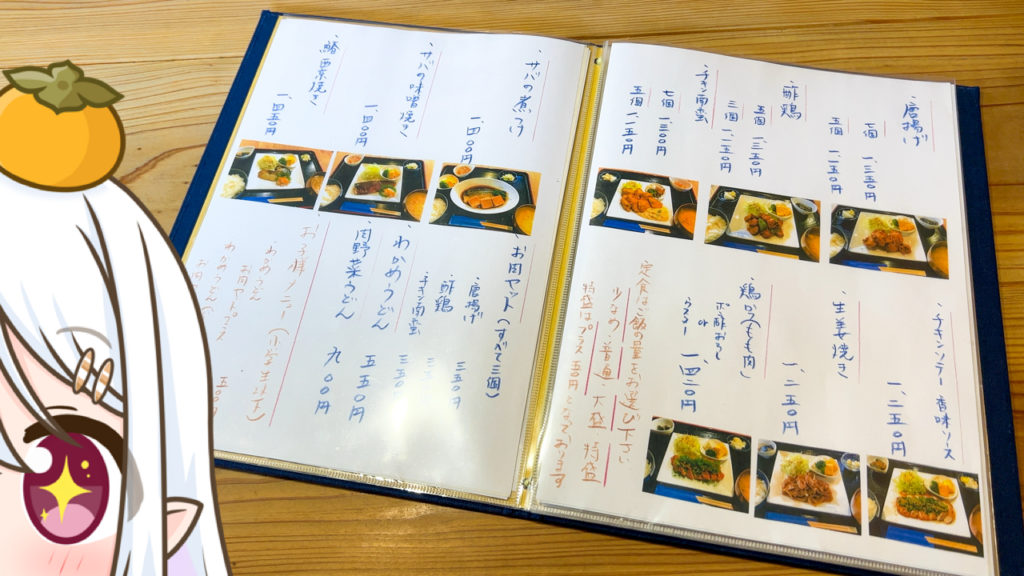 唐揚げ
七個 一、三五〇円
五個 一、一五〇円
酢鶏
五個 一、三五〇円
三個 一、一五〇円
チキン南蛮
七個 一、三〇〇円
五個 一、一五〇円
チキンソテー 香味ソース
一、二五〇円
生姜焼き
一、二五〇円
鶏かつ(もも肉)
ポン酢おろし
or
一、四二〇円
定食はご飯の量をお選び下さい
少なめ 普通 大盛 特盛
特盛はプラス五〇円となっております
サバの煮つけ
一、四〇〇円
サバの味噌焼き
一、四〇〇円
鰆西京焼き
一、四五〇円
お肉セット(すべて三個)
唐揚げ 三五〇円
酢鶏
チキン南蛮
わかめうどん 五五〇円
肉野菜うどん 九〇〇円
お子様メニュー(小学生以下)
わかめうどん
わかめうどん
五五〇円